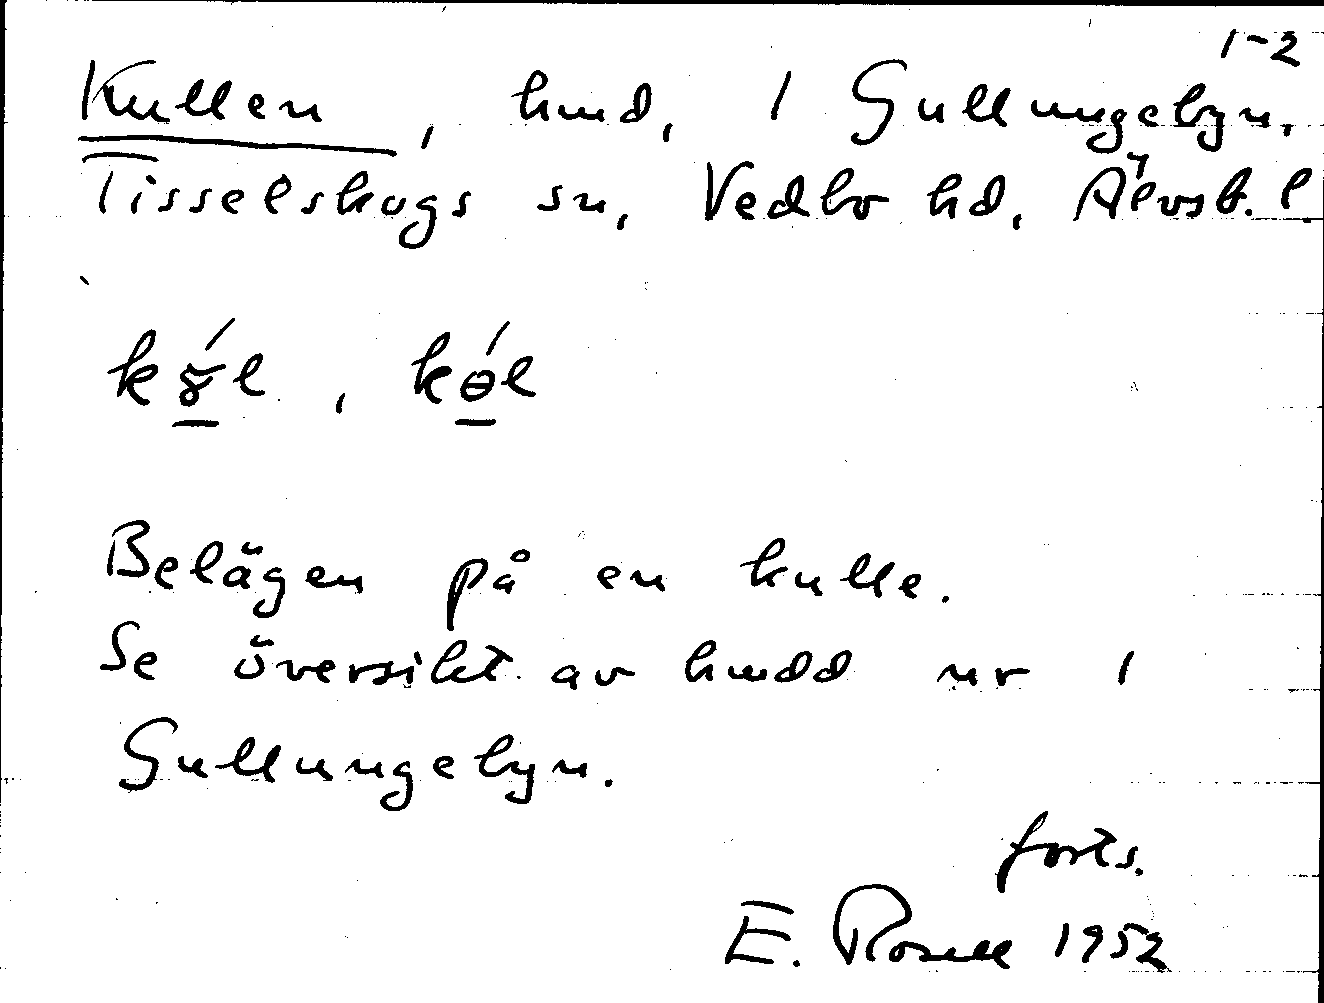 1-2
Kullen, hmd, 1 Gullungebyn,
Tisselskogs sn, Vedbo hd, Älvsb. l.
Belägen på en kulle.
Se översikt av hmdd nr 1
Gullungebyn.
forts.
E. Rosell 1952